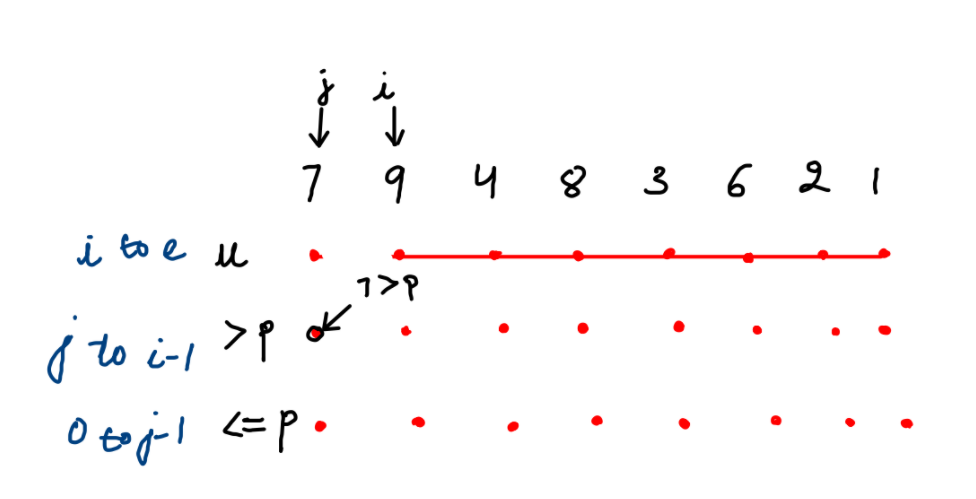 j i
7 9 4 8 3 6 2 1
i to e u
7>p
j to i-1 >p
0 to j-1 <= p